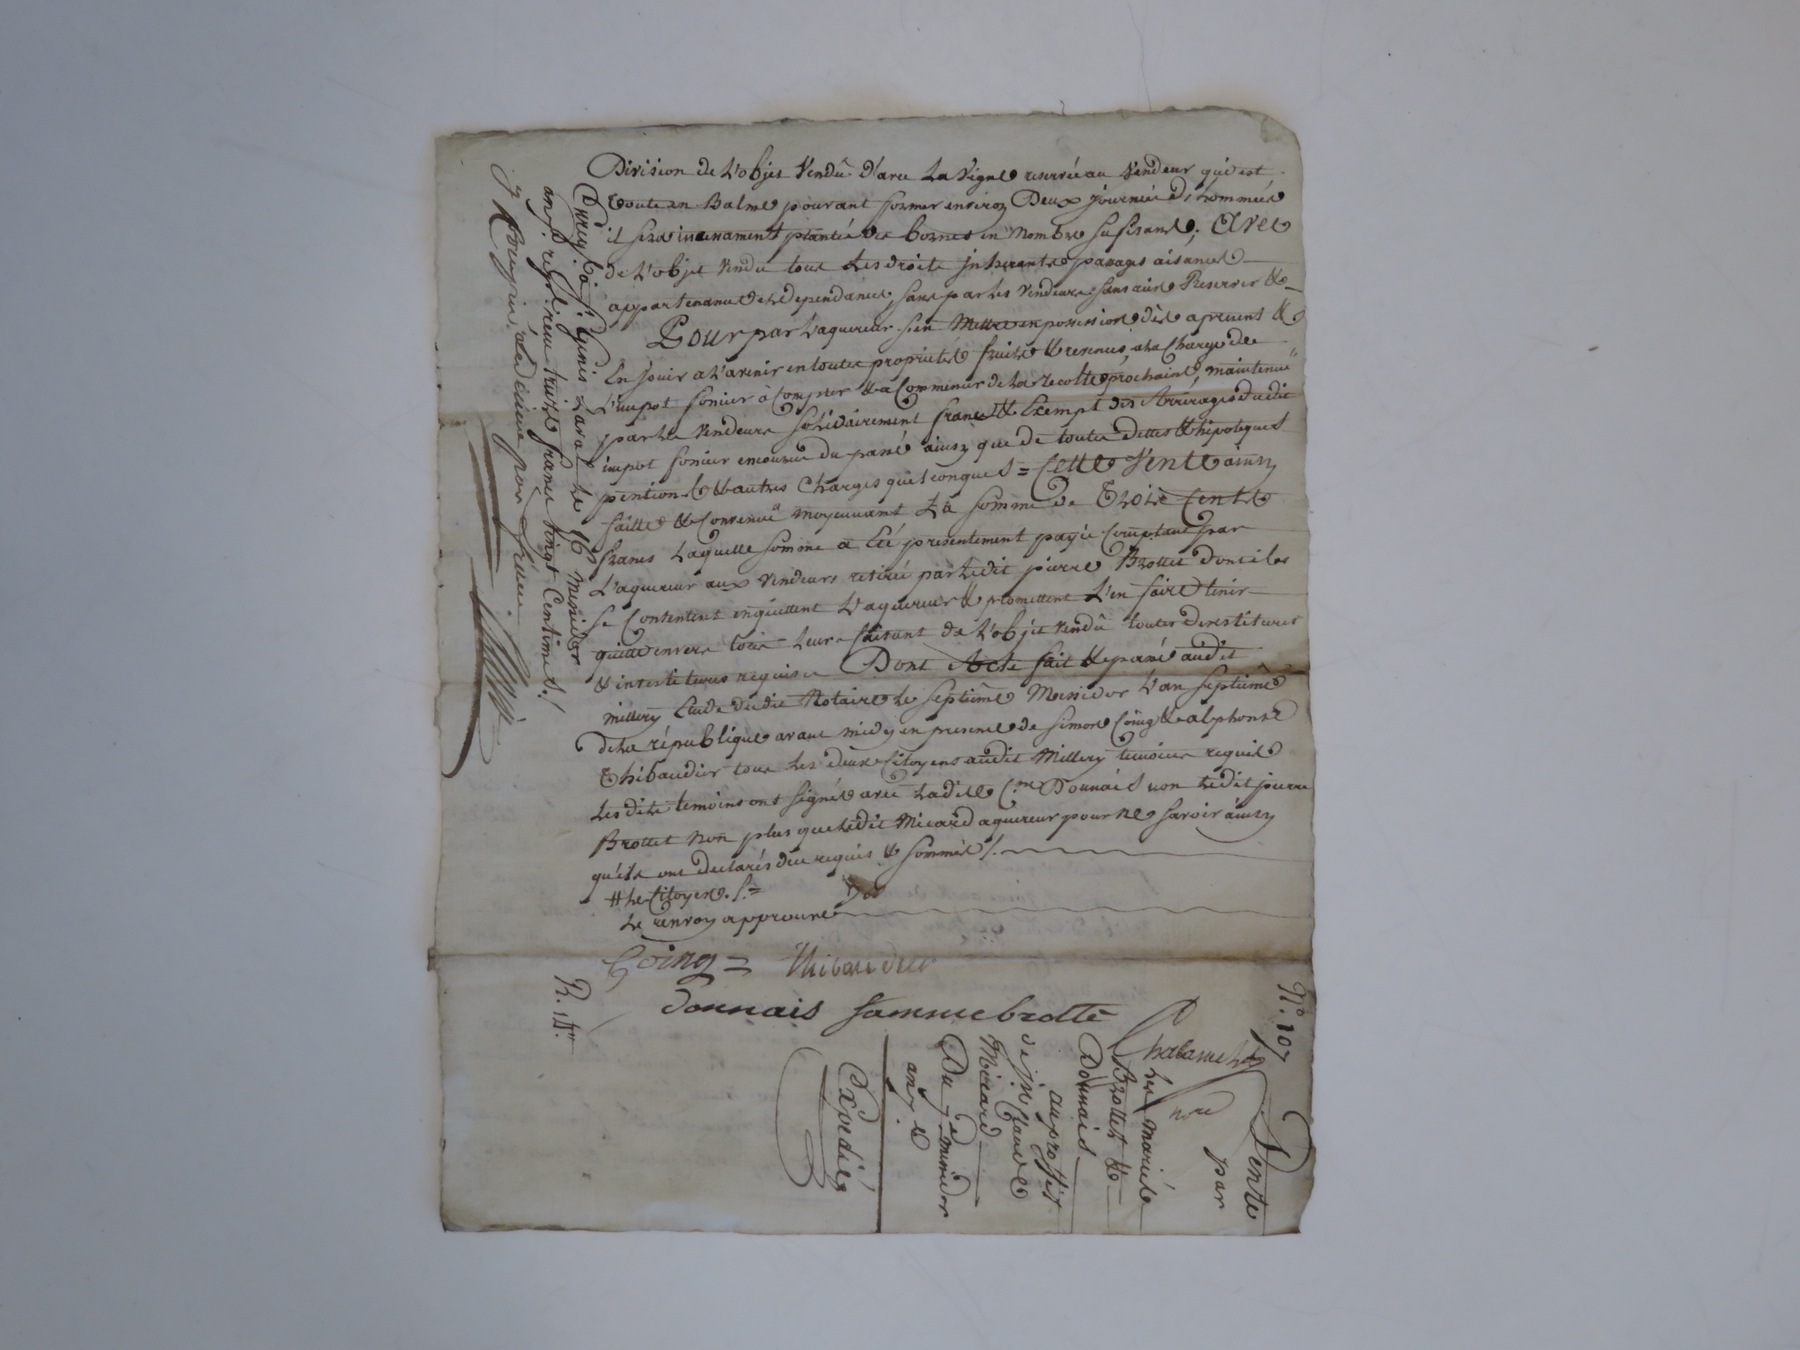 Division de L'objet Vendû d'avec La Vigne reservée au Vendeur qui est
toute en Balme pouvant former environ Deux journées d'hommée
il sera incessament plantée des bornes en Nombre sufisant; Avec
de L'objet vendu tous Les droits jnherants passages aisances
appartenances & dependances, sans par Les Vendeurs sans aucune Reserver &
Pour par L'aquereur s'en Mettre en possession dès apresent &
En jouir a L'avenir en toutes propriété fruits & revenus, a la Charge de
L'impot foncier à Compter & a Commencer de La recolte prochaine, maintenue
par Les Vendeurs solidairement franc & Exempt des Arrerages dudit
impot foncier encourus du passé ainsy que de toutes dettes & hipoteques
pentions & autres Charges quelconques = Cette Vente ainsy
faitte & Convenue moyennant La somme de Trois Cents
francs Laquelle somme a Eté presentement payée Comptant par
L'aquereur aux Vendeurs retirée par Ledit pierre Brottet dont ils
se Contentent en quittent L'aquereur & promettent L'en faire tenir
quitte envers tous Leurs faisant de L'objet Vendû toutes devestitures
& investitures requises Dont Acte fait & passé audit
millery Etude dudit Notaire Le Septième Messidor L'an Septième
de La république avant midy en presence de Simon Coing & alphonse
Thibaudier tous Les deux Citoyens audit Millery temoins requis
Les dits temoins ont signés avec Ladite C.ne Donnais non Ledit pierre
Brottet non plus que Ledit Micard aquereur pour Ne savoir ainsy
qu'ils ont declarés de ce requis & sommés /.
# Le Citoyen
Le renvoy approuvé
Coing = Thibaudier
Donnais famme brotte
Chalamel
nre
Enreg. à St. Genis Laval Le 16 messidor
an 7. reçu treize francs vingt Centimes /.
R. 1f
No. 107
Vente
par
Les mariés
Brottet &
Donnais
au proffit
de jn Claude
Micard
Du 7e messidor
an 7. &
Expedié